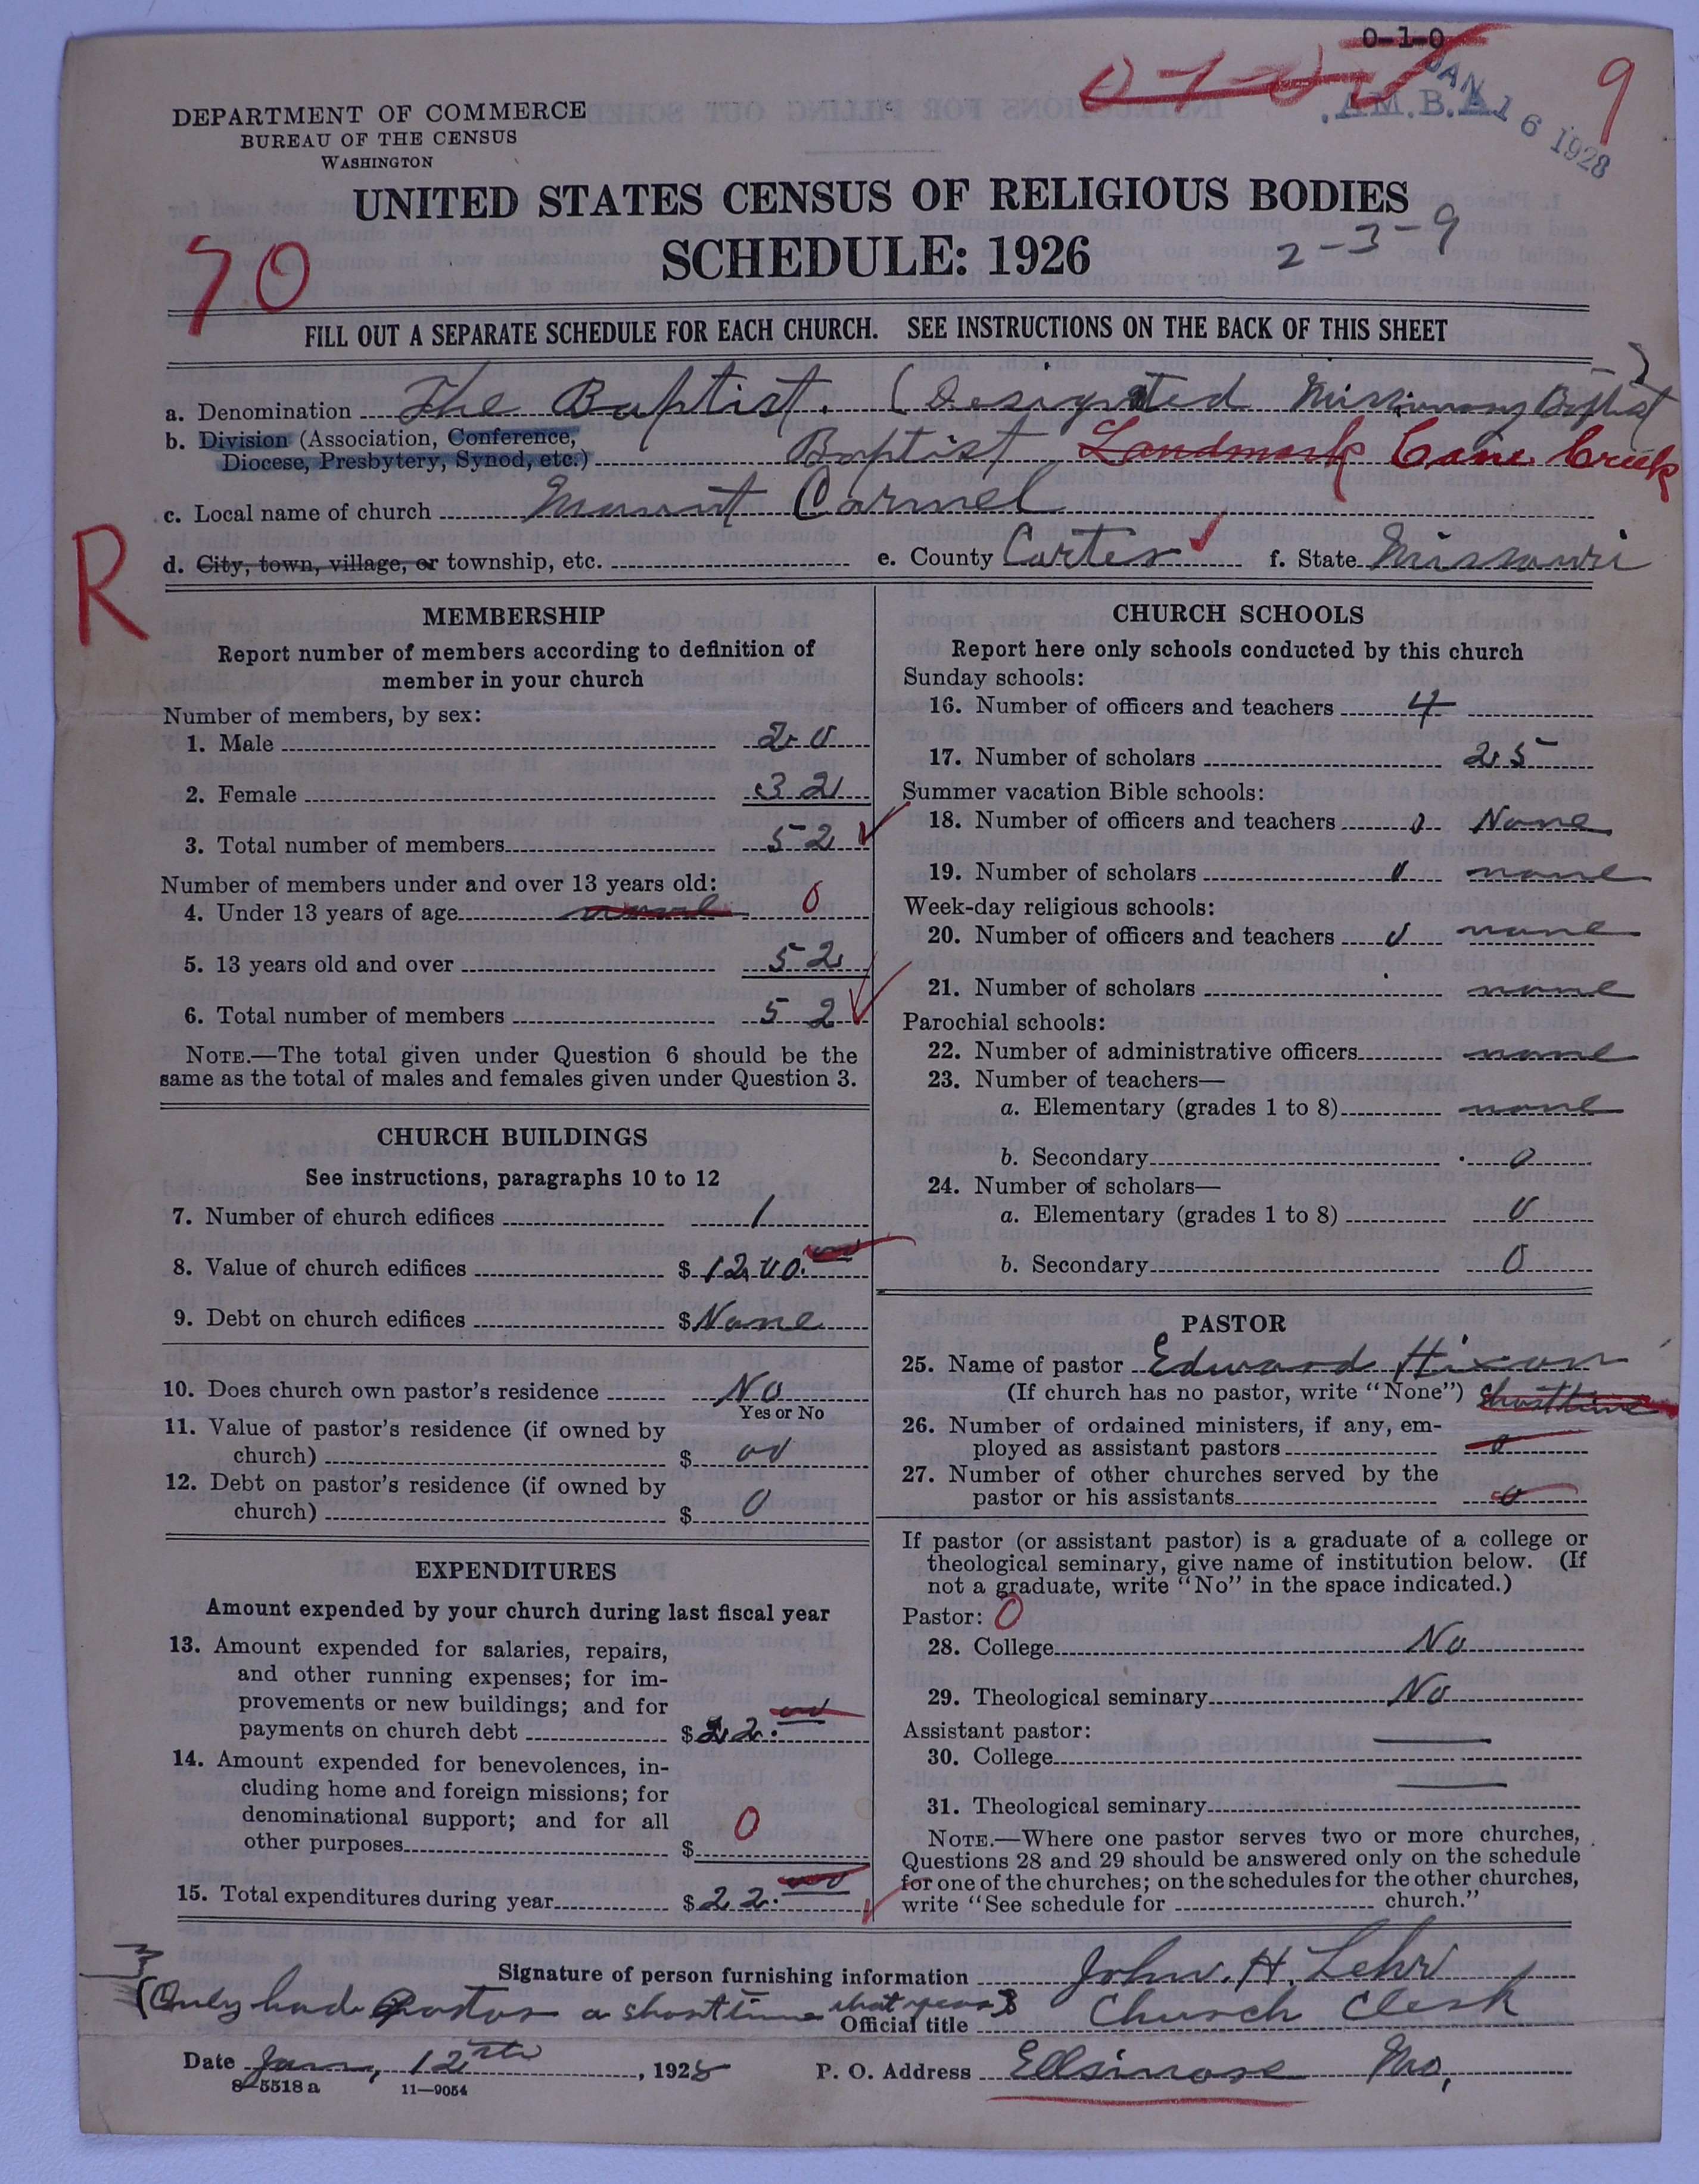 0-1-0
JAN 16 1928
.AM.B.A.
9
DEPARTMENT OF COMMERCE
BUREAU OF THE CENSUS
WASHINGTON
UNITED STATES CENSUS OF RELIGIOUS BODIES
SCHEDULE: 1926
2-3-9
70
FILL OUT A SEPARATE SCHEDULE FOR EACH CHURCH. SEE INSTRUCTIONS ON THE BACK OF THIS SHEET
a. Denomination The Baptist. (Designated Missionary Baptist)
b. Division (Association, Conference,
Diocese, Presbytery, Synod, etc.) Baptist Landmark Cane Creek
c. Local name of church Mount Carmel
d. City, town, village, or township, etc. e. County Carter f. State Missouri
R
MEMBERSHIP
Report number of members according to definition of
member in your church
Number of members, by sex:
1. Male 20
2. Female 32
3. Total number of members 52
Number of members under and over 13 years old:
4. Under 13 years of age 0
5. 13 years old and over 52
6. Total number of members 52
NOTE.—The total given under Question 6 should be the
same as the total of males and females given under Question 3.
CHURCH BUILDINGS
See instructions, paragraphs 10 to 12
7. Number of church edifices 1
8. Value of church edifices $ 1200.
9. Debt on church edifices $ None
10. Does church own pastor's residence No
Yes or No
11. Value of pastor's residence (if owned by
church) $ 00
12. Debt on pastor's residence (if owned by
church) $ 0
EXPENDITURES
Amount expended by your church during last fiscal year
13. Amount expended for salaries, repairs,
and other running expenses; for im-
provements or new buildings; and for
payments on church debt $ 22.00
14. Amount expended for benevolences, in-
cluding home and foreign missions; for
denominational support; and for all
other purposes $ 0
15. Total expenditures during year $ 22.00
CHURCH SCHOOLS
Report here only schools conducted by this church
Sunday schools:
16. Number of officers and teachers 4
17. Number of scholars 25
Summer vacation Bible schools:
18. Number of officers and teachers 0 None
19. Number of scholars 0 none
Week-day religious schools:
20. Number of officers and teachers 0 none
21. Number of scholars none
Parochial schools:
22. Number of administrative officers none
23. Number of teachers—
a. Elementary (grades 1 to 8) none
b. Secondary 0
24. Number of scholars—
a. Elementary (grades 1 to 8) 0
b. Secondary 0
PASTOR
25. Name of pastor Edward Hixon
(If church has no pastor, write "None") Short time
26. Number of ordained ministers, if any, em-
ployed as assistant pastors 0
27. Number of other churches served by the
pastor or his assistants 0
If pastor (or assistant pastor) is a graduate of a college or
theological seminary, give name of institution below. (If
not a graduate, write "No" in the space indicated.)
Pastor: 0
28. College No
29. Theological seminary No
Assistant pastor:
30. College
31. Theological seminary
NOTE.—Where one pastor serves two or more churches,
Questions 28 and 29 should be answered only on the schedule
for one of the churches; on the schedules for the other churches,
write "See schedule for church."
Signature of person furnishing information John. H. Lehr
(Only had Pastor a short time that year)
Official title Church Clerk
Date Jan, 12th, 1928 P. O. Address Ellsinore Mo,
8-5518 a 11—9054